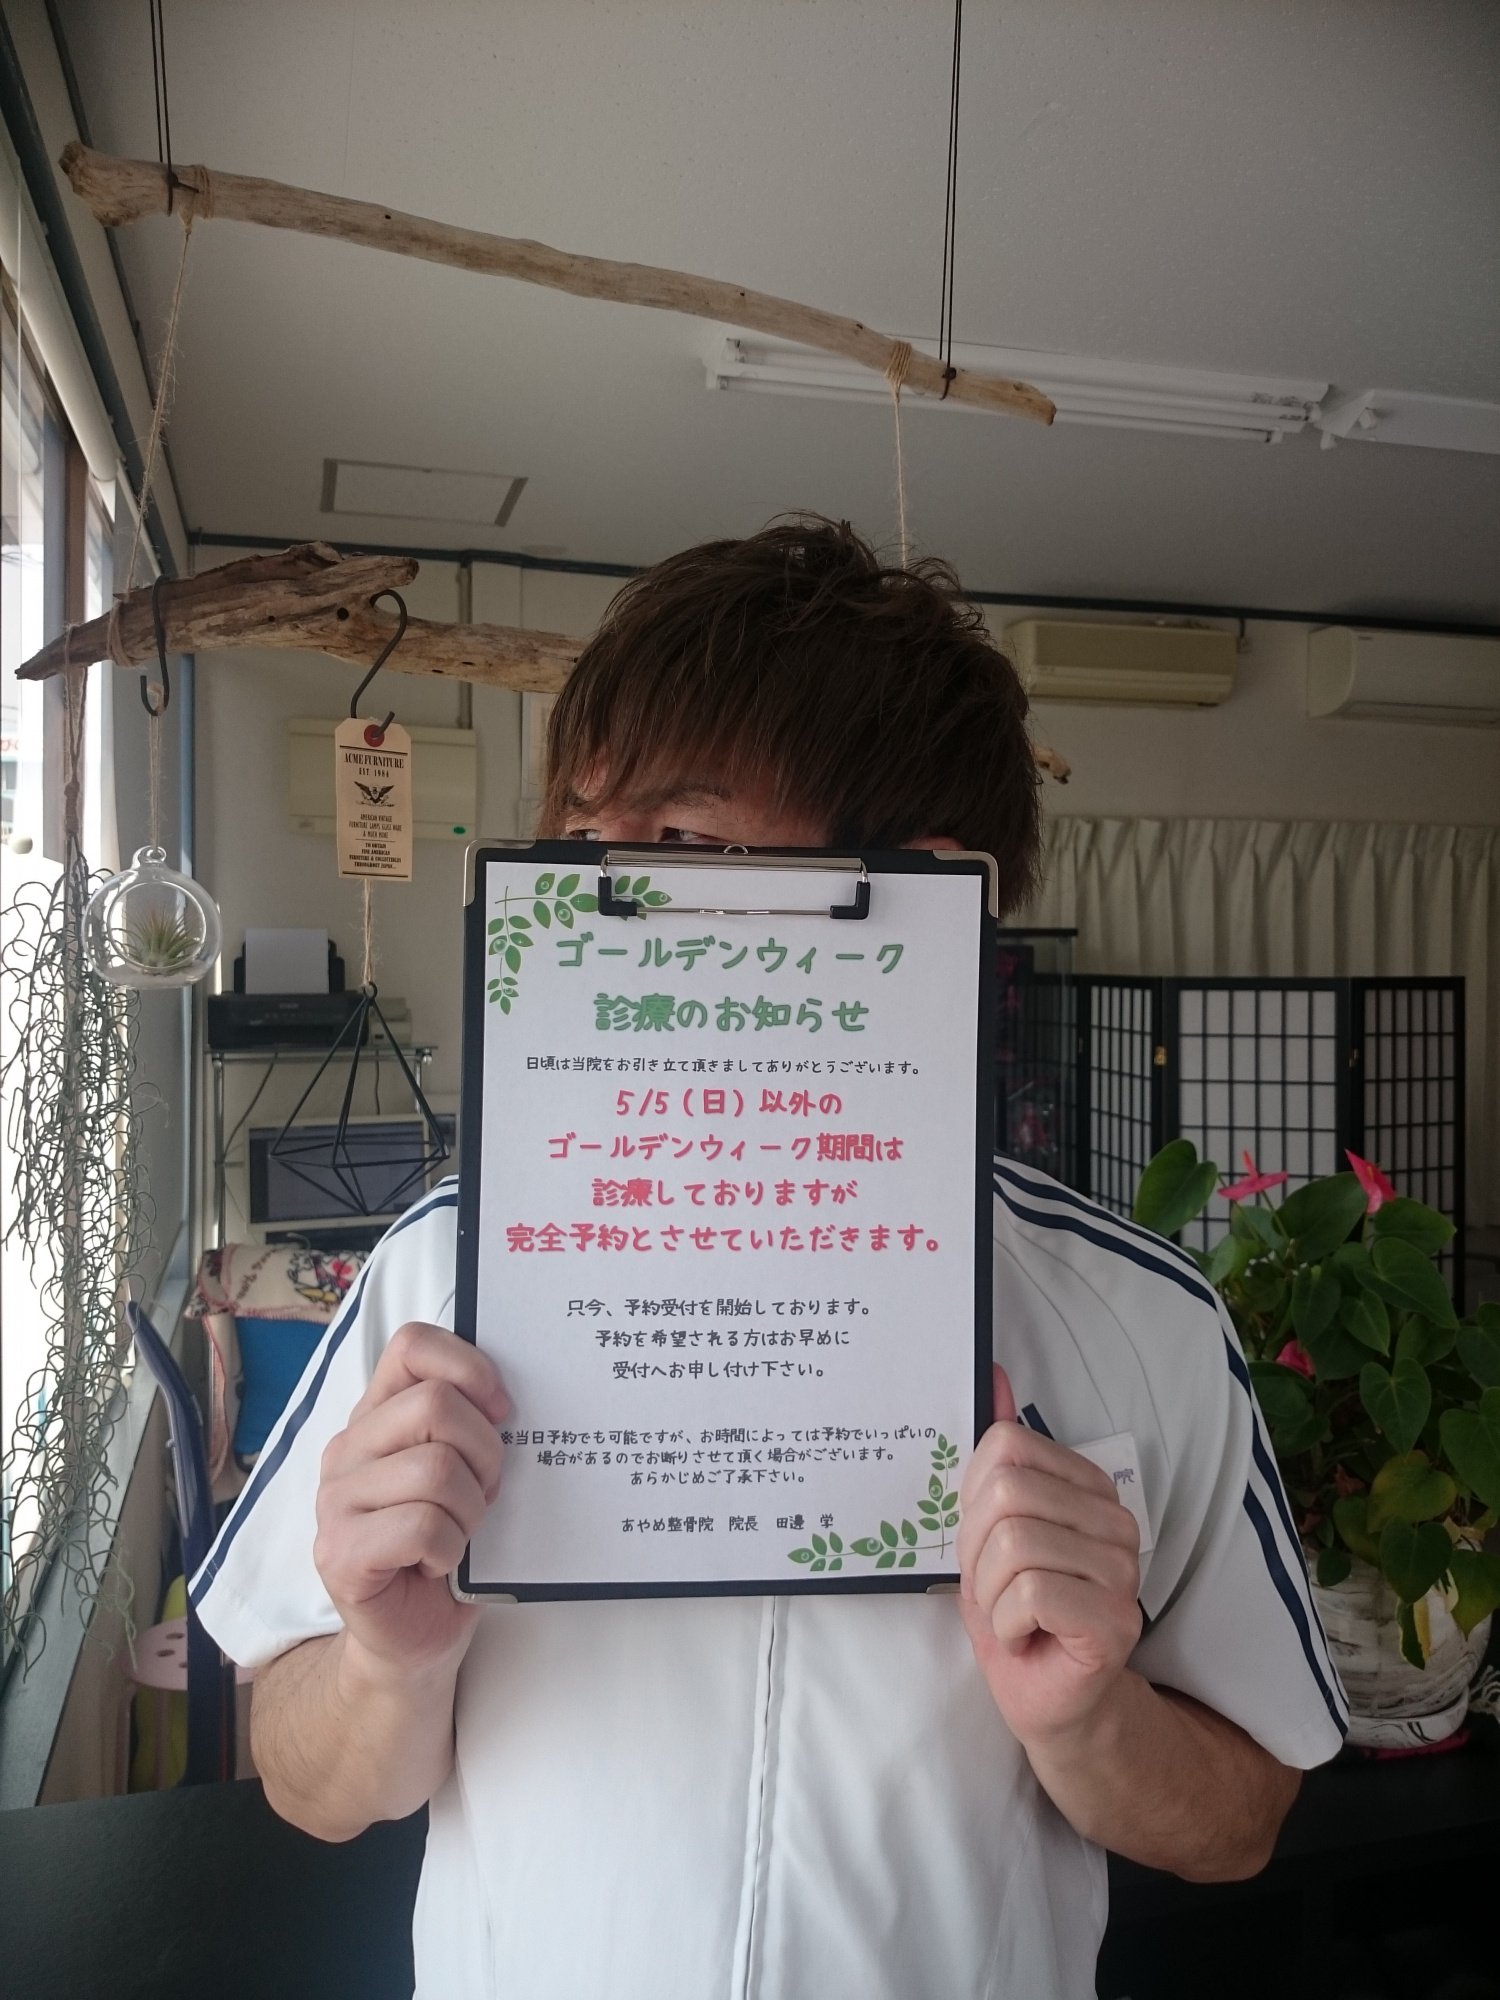 ACME FURNITURE
EST 1984
AMERICAN VINTAGE
FURNITURE LAMPS GLASS WARE
& MUCH MORE
TO OBTAIN
FINE AMERICAN
FURNITURE & COLLECTIBLES
THROUGHOUT JAPAN...
ゴールデンウィーク
診療のお知らせ
日頃は当院をお引き立て頂きましてありがとうございます。
5/5（日）以外の
ゴールデンウィーク期間は
診療しておりますが
完全予約とさせていただきます。
只今、予約受付を開始しております。
予約を希望される方はお早めに
受付へお申し付け下さい。
※当日予約でも可能ですが、お時間によっては予約でいっぱいの
場合があるのでお断りさせて頂く場合がございます。
あらかじめご了承下さい。
あやめ整骨院　院長　田邊　学
院